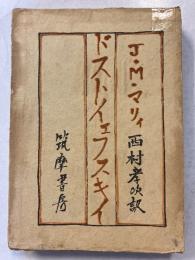 J・M・マリィ
西村孝次訳
ドストイェフスキイ
筑摩書房